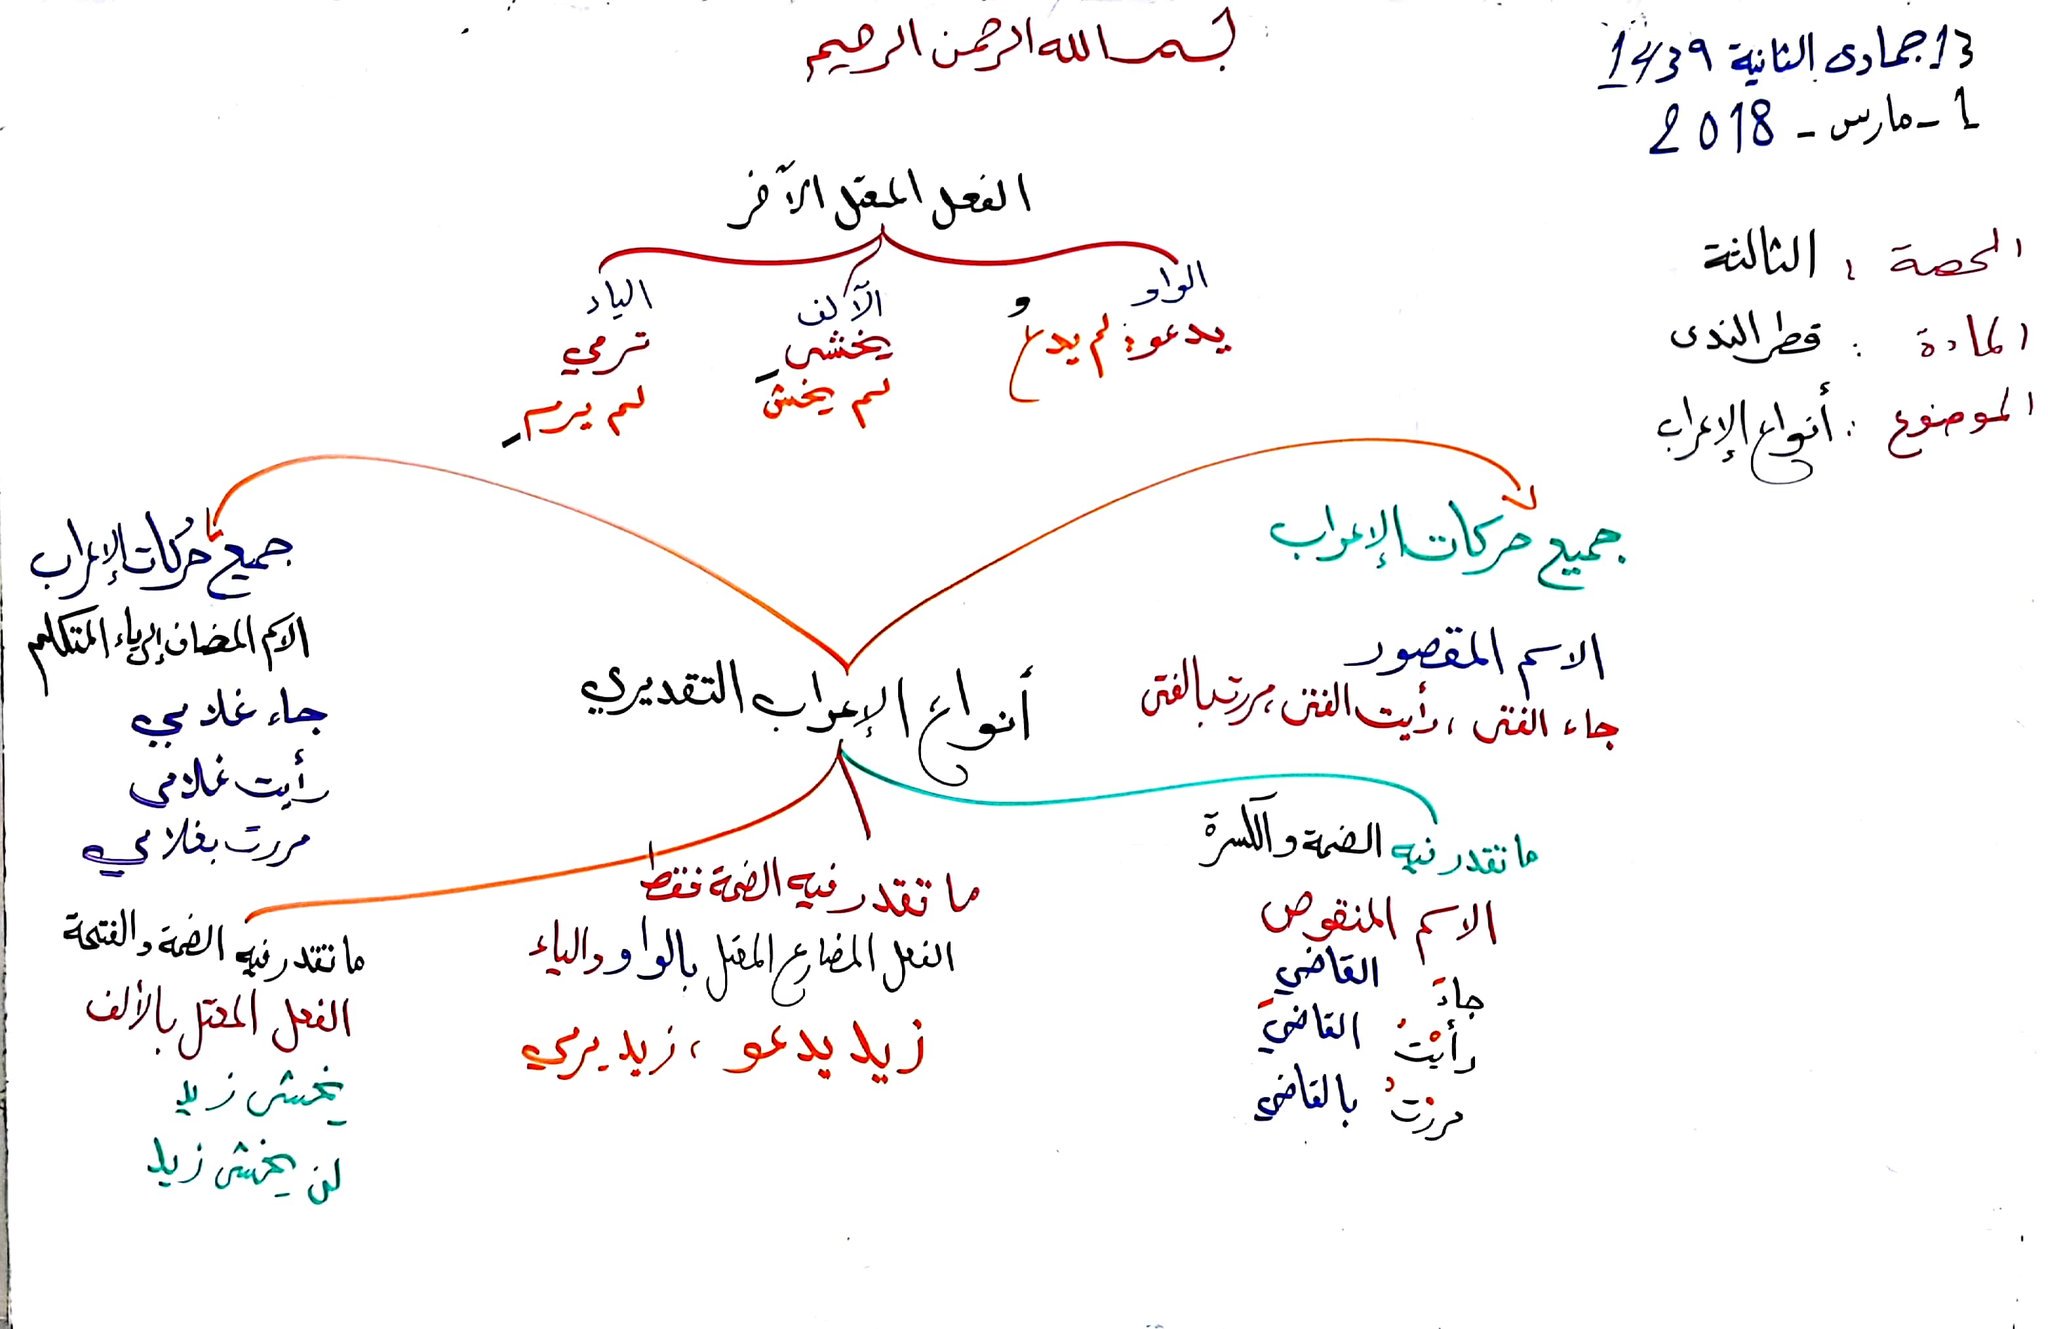 بسم الله الرحمن الرحيم
13 جمادى الثانية 1439
1 - مارس - 2018
الحصة : الثالثة
المادة : قطر الندى
الموضوع : أنواع الإعراب
الفعل المعتل الآخر
الواو
يدعو: لم يدع
و
الألف
يخشى
لم يخش
الياء
ترمي
لم يرم
أنواع الإعراب التقديري
جميع حركات الإعراب
الاسم المقصور
جاء الفتى ، رأيت الفتى ، مررت بالفتى
ما تقدر فيه الضمة والكسرة
الاسم المنقوص
جاءَ القاضي
رأيْتُ القاضيَ
مررتُ بالقاضي
ما تقدر فيه الضمة فقط
الفعل المضارع المعتل بالواو والياء
زيد يدعو ، زيد يرمي
ما تقدر فيه الضمة والفتحة
الفعل المعتل بالألف
يخشى زيد
لن يخشى زيد
جميع حركات الإعراب
الاسم المضاف إلى ياء المتكلم
جاء غلامي
رأيت غلامي
مررت بغلامي